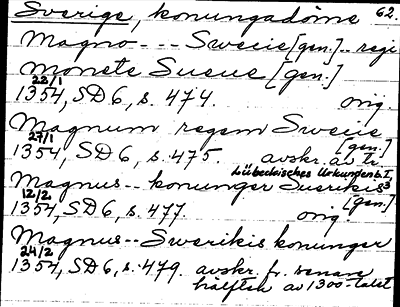 Sverige, konungadöme 62.
Magno --- Swecie [gen.] .. regi
monete Suecie [gen.]
22/1
1354, SD 6, s. 474. orig.
Magnum regem Swecie
27/1 [gen.]
1354, SD 6, s. 475. avskr. av tr.
Lübeckisches Urkundenb. I. 3
Magnus -- konunger Suerikis
12/2 [gen.]
1354, SD 6, s. 477. orig.
Magnus -- Swerikis konunger
24/2
1354, SD 6, s. 479. avskr. fr. senare
hälften av 1300-talet